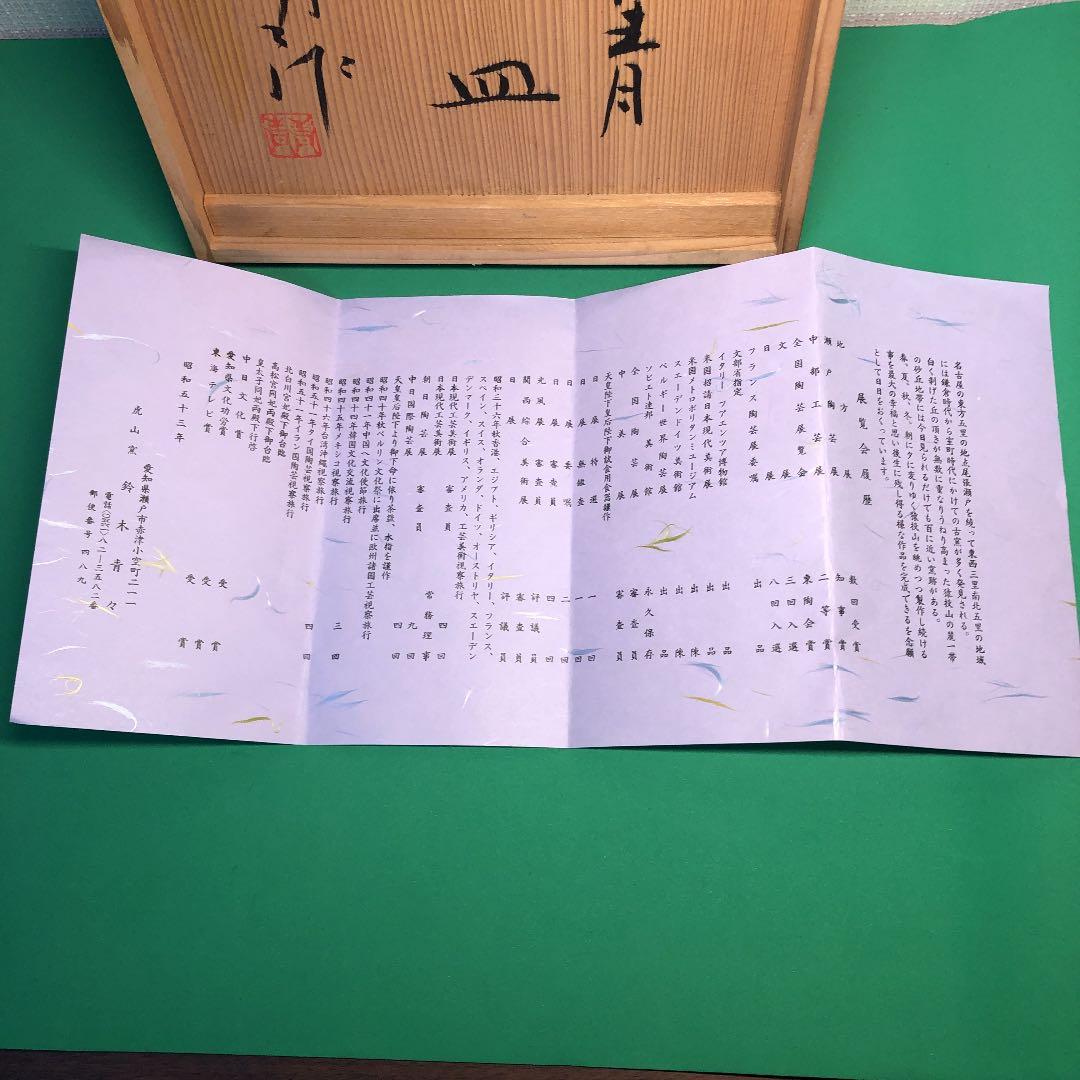 青
皿
作
名古屋の東方五里の地点尾張瀬戸を繞って東西三里南北五里の地域
には鎌倉時代から室町時代にかけての古窯が多く発見される。
白く剥げた丘の頂きが無数に重なりうねり高まった猿投山の麓一帯
の砂丘地帯には今日見られるだけでも百に近い窯跡がある。
春、夏、秋、冬、朝に夕に変りゆく猿投山を眺めつつ製作し続ける
事を最大の幸福と思い後生に残し得る様な作品を完成できるを念願
として日日をおくっています。
展覧会履歴
地方展 数回受賞
瀬戸陶芸展 知事賞
中部工芸展 二等賞
全国陶芸展覧会 東陶会賞
文展 三回入選
日展 八回入選
フランス陶芸展委嘱 出品
文部省指定
イタリーフアエンツア博物館 出品
米国招請日本現代美術展 出品
米国メトロポリタンミュージアム 出陳
スエーデンドイツ美術館 出陳
ベルギー世界陶芸展 出品
ソビエト連邦美術館 永久保存
全国陶芸展 審査員
中美展 審査員
天皇陛下皇后陛下御試食用食器謹作
日展特選 一回
日展無鑑査 一回
日展委嘱 二回
日展審査員 四回
光風展審査員 評議員
関西綜合美術展 審査員
日展 評議員
昭和三十六年秋香港、エジプト、ギリシア、イタリー、フランス、
スペイン、スイス、オランダ、ドイツ、オーストリヤ、スエーデン
デンマーク、イギリス、アメリカ、工芸美術視察旅行
日本現代工芸美術展
日本現代工芸美術展 審査員 四回
朝日陶芸展 常務理事
中日国際陶芸展 審査員 九回
天皇皇后陛下より御下命に依り茶盌、水指を謹作 四回
昭和四十年秋ベルリン文化祭に出席並に欧州諸国工芸視察旅行
昭和四十二年中国へ文化使節旅行
昭和四十四年韓国文化交流視察旅行
昭和四十五年メキシコ視察旅行 三回
昭和四十六年台湾沖縄視察旅行
昭和五十一年タイ国陶芸視察旅行 四回
昭和五十一年イラン国陶芸視察旅行
北白川宮妃殿下御台臨
高松宮同妃両殿下御台臨
皇太子同妃両殿下行啓
中日文化賞 受賞
愛知県文化功労賞 受賞
東海テレビ賞 受賞
昭和五十三年
愛知県瀬戸市赤津小空町二一一
虎山窯 鈴木青々
電話(〇五六一)八二―三五八二番
郵便番号 四八九